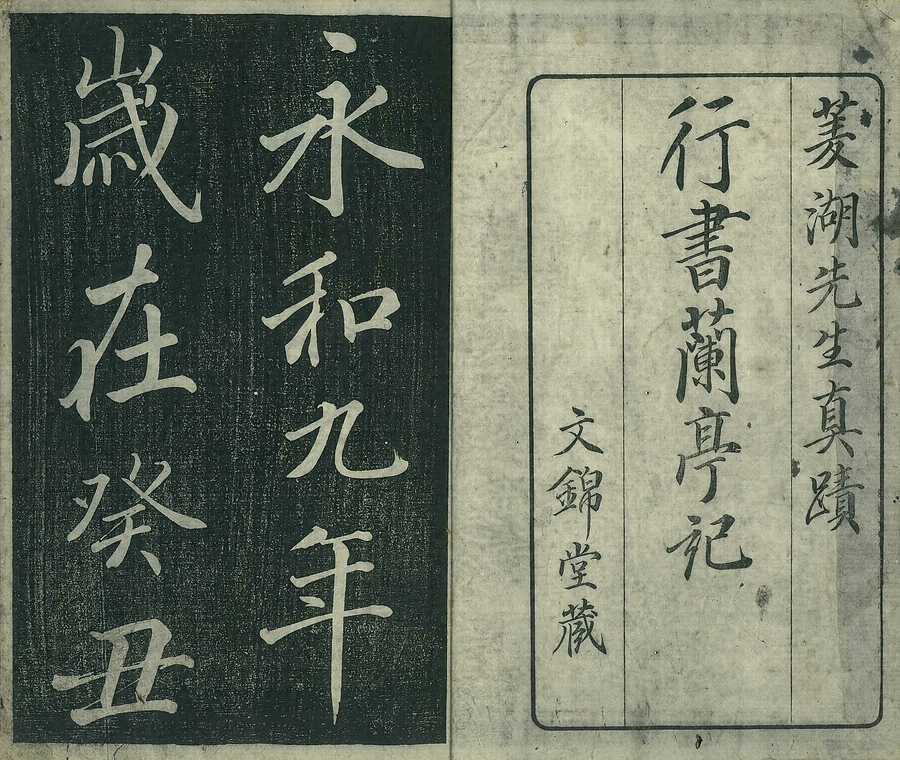 菱湖先生真蹟
行書蘭亭記
文錦堂藏
永和九年
歲在癸丑